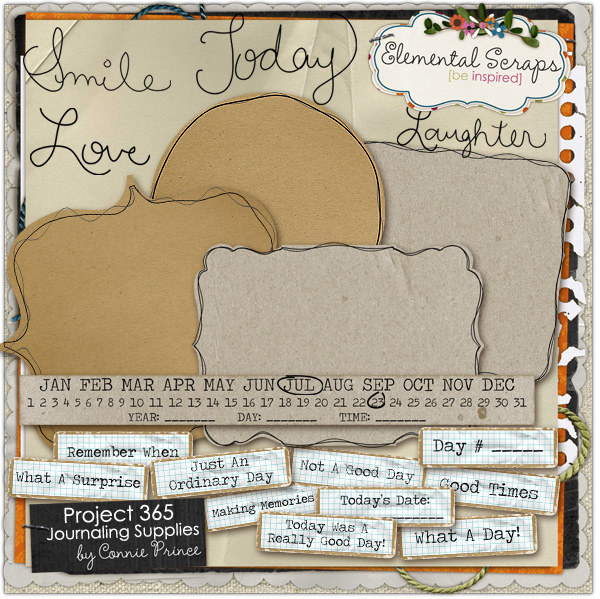 Smile Today
Elemental Scraps
[be inspired]
Love
Laughter
JAN FEB MAR APR MAY JUN JUL AUG SEP OCT NOV DEC
1 2 3 4 5 6 7 8 9 10 11 12 13 14 15 16 17 18 19 20 21 22 23 24 25 26 27 28 29 30 31
YEAR: _______ DAY: _______ TIME: _______
Remember When
Day # _____
What A Surprise
Just An
Ordinary Day
Not A Good Day
Good Times
Making Memories
Today's Date:
________
Project 365
Journaling Supplies
by Connie Prince
Today Was A
Really Good Day!
What A Day!